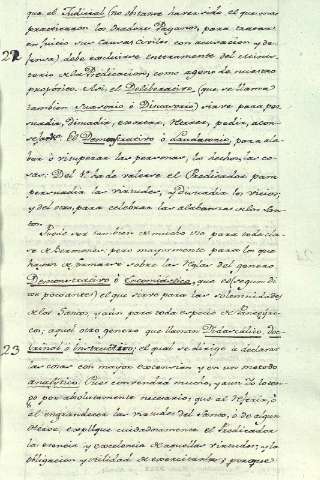 que el Judicial (no obstante haver sido el que mas
practicaron los Oradores Paganos, para tratar
en Juicio sus Causas Civiles con acusacion, y de-
fensa) debe excluirse enteramente del Minis-
terio de la Predicacion, como ageno de nuestro
22 proposito. Asi, el Deliberativo, (que se llama
tambien Suasorio ò Disuasorio) sirve para per-
suadir, disuadir, exortar, rogar, pedir, acon-
sejar. El Demostrativo ò Laudatorio, para ala-
bar ò vituperar las personas, los hechos, las co-
sas. Del 1º ha de valerse el Predicador para
persuadir las virtudes, y disuadir los vicios;
y del otro, para celebrar las alabanzas de los San-
tos.
Puede ser tambien de mucho uso para toda cla-
se de Sermones, pero mayormente para los que
hayan de formarse sobre las reglas del genero
Demonstrativo ò Encomiástico, que es (segun di-
xe poco antes) el que sirve para las solemnidades
de los Santos, y aún para toda especie de Panegiri-
co; aquel otro genero que llaman Didascálico, doc-
23 trinál ò Instructivo; el qual se dirige à declarar
las cosas con mayor extension, y en un metodo
analytico. Pues convendrà mucho, y aun lo ten-
go por absolutamente necesario, que al referir, ò
al engrandecer las virtudes del Santo, ò de algun
Heroe, explique cuidadosamente el Predicador
la esencia y excelencia de aquellas virtudes, y la
obligacion y utilidad de exercitarlas; porque